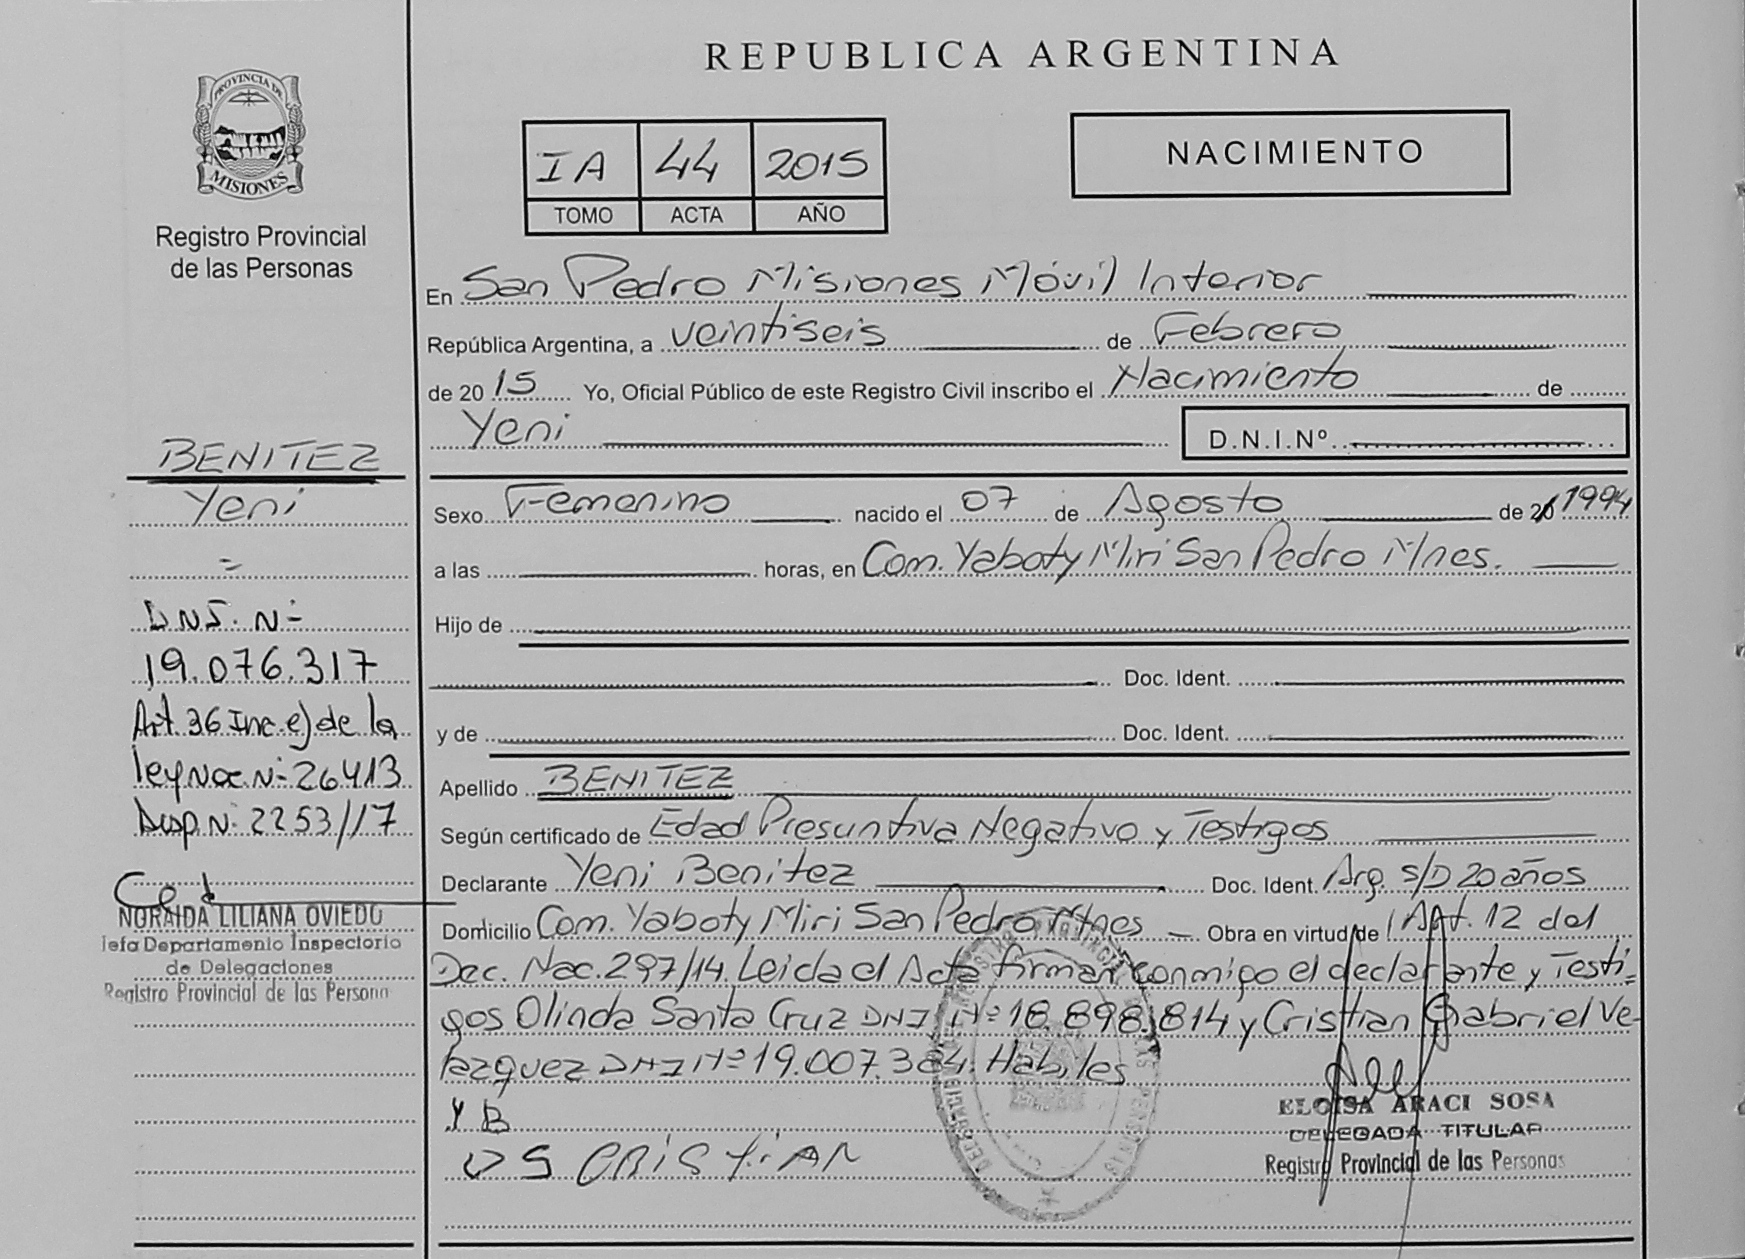 REPUBLICA ARGENTINA
PROVINCIA DE
MISIONES
Registro Provincial
de las Personas
IA 44 2015
TOMO ACTA AÑO
NACIMIENTO
En San Pedro Misiones Móvil Interior
República Argentina, a veintiseis de Febrero
de 2015 Yo, Oficial Público de este Registro Civil inscribo el Nacimiento de
Yeni D.N.I.Nº
BENITEZ
Yeni
=
DNI. Nº
19.076.317
Art. 36 Inc. e) de la
ley Nac. Nº 26413
Disp. Nº 2253/17
NORAIDA LILIANA OVIEDO
Jefa Departamento Inspectorio
de Delegaciones
Registro Provincial de las Person
Sexo Femenino nacido el 07 de Agosto de 20 1994
a las horas, en Com. Yaboty Miri San Pedro Mnes.
Hijo de
Doc. Ident.
y de Doc. Ident.
Apellido BENITEZ
Según certificado de Edad Presuntiva Negativo y Testigos
Declarante Yeni Benitez Doc. Ident. Arg. s/D 20 años
Domicilio Com. Yaboty Miri San Pedro Mnes Obra en virtud de l Art. 12 del
Dec. Nac. 297/14. Leida el Acta firman conmigo el declarante y Testi-
gos Olinda Santa Cruz DNI Nº 18.898.814 y Cristian Gabriel Ve-
lazquez DNI Nº 19.007.384. Habiles
Y B
OS CRISTIAN
ELOISA ARACI SOSA
DELEGADA TITULAR
Registro Provincial de las Personas